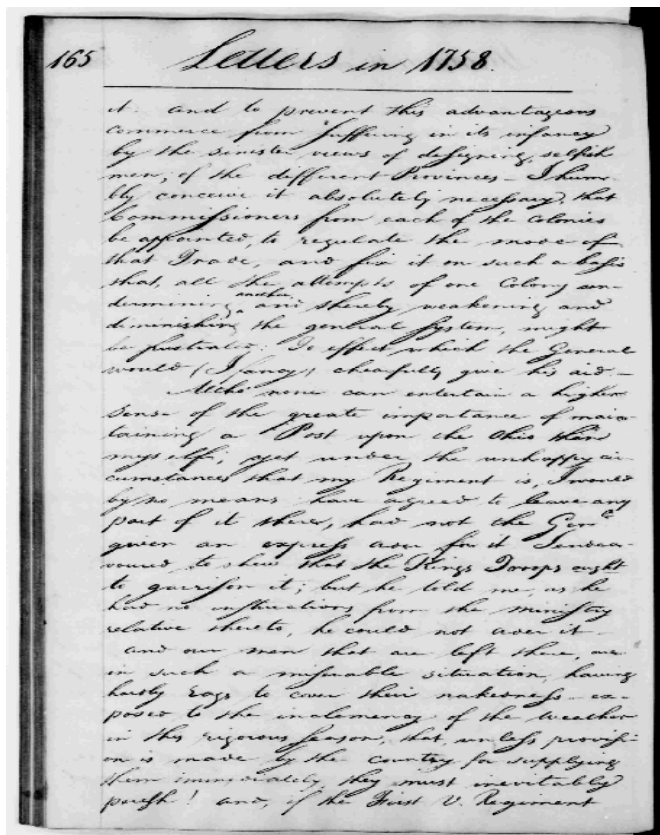 165 Letters in 1758.
it. and to prevent this advantageous
commerce from suffering in its infancy
by the sinister views of designing, selfish
men, of the different Provinces - I hum-
bly conceive it absolutely necessary that
Commissioners from each of the Colonies
be appointed, to regulate the mode of
that Trade, and fix it on such a basis
that, all the attempts of one Colony un-
dermining another, and thereby weakening and
diminishing the general System, might
be frustrated: To effect which the General
would (I fancy) chearfully give his aid -
Altho' none can entertain a higher
Sense of the great importance of main-
taining a Post upon the Ohio than
myself; yet under the unhappy cir-
cumstances that my Regiment is, I would
by no means have agreed to leave any
part of it there, had not the Genl.
given an express order for it. I endea-
voured to shew that the Kings Troops ought
to garrison it; but he told me, as he
had no instructions from the ministry
relative thereto, he could not order it -
and our men that are left there, are
in such a miserable situation, having
hardly rags to cover their nakedness - ex-
posed to the inclemency of the weather
in this rigorous Season, that, unless provisi-
on is made by the Country for supplying
them immediately, they must inevitably
perish! and, if the First V. Regiment